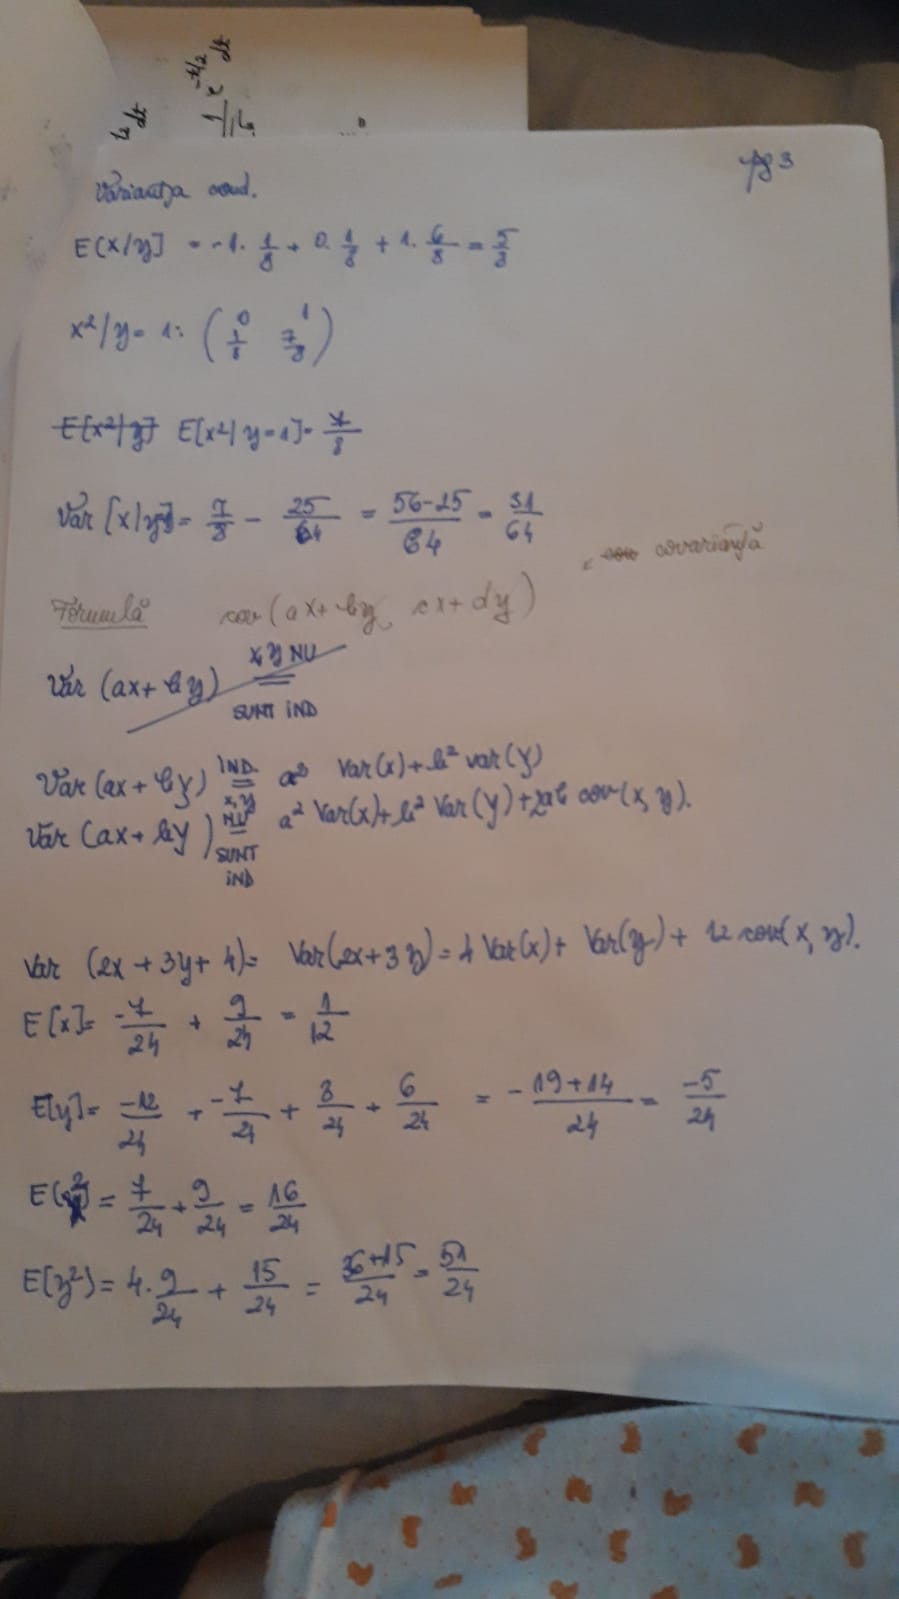 1/2 dt
e^{-t/2} dt
pg 3
Varianța cond.
E[x/y] = -1. 1/8 + 0. 1/8 + 1. 6/8 = 5/8
x²/y= 1: ( 0 1 ; 1/8 7/8 )
E[x²|y] E[x²|y=1]= 7/8
Var [x|y] = 7/8 - 25/64 = 56-25/64 = 31/64
covarianță
Formulă cov(ax+by, cx+dy)
Var (ax+by) x,y NU = SUNT IND
Var (ax+by) IND. = x,y a² Var(x)+b² var(y)
Var (ax+by) NU = SUNT IND a² Var(x)+b² Var(y)+2ab cov(x,y).
Var (2x+3y+4)= Var(2x+3y)=4 Var(x)+ Var(y)+ 12 cov(x,y).
E[x]= -7/24 + 9/24 = 1/12
E[y]= -12/24 + -7/24 + 8/24 + 6/24 = -19+14/24 = -5/24
E(x²) = 7/24 + 9/24 = 16/24
E(y²)= 4. 9/24 + 15/24 = 36+15/24 = 51/24